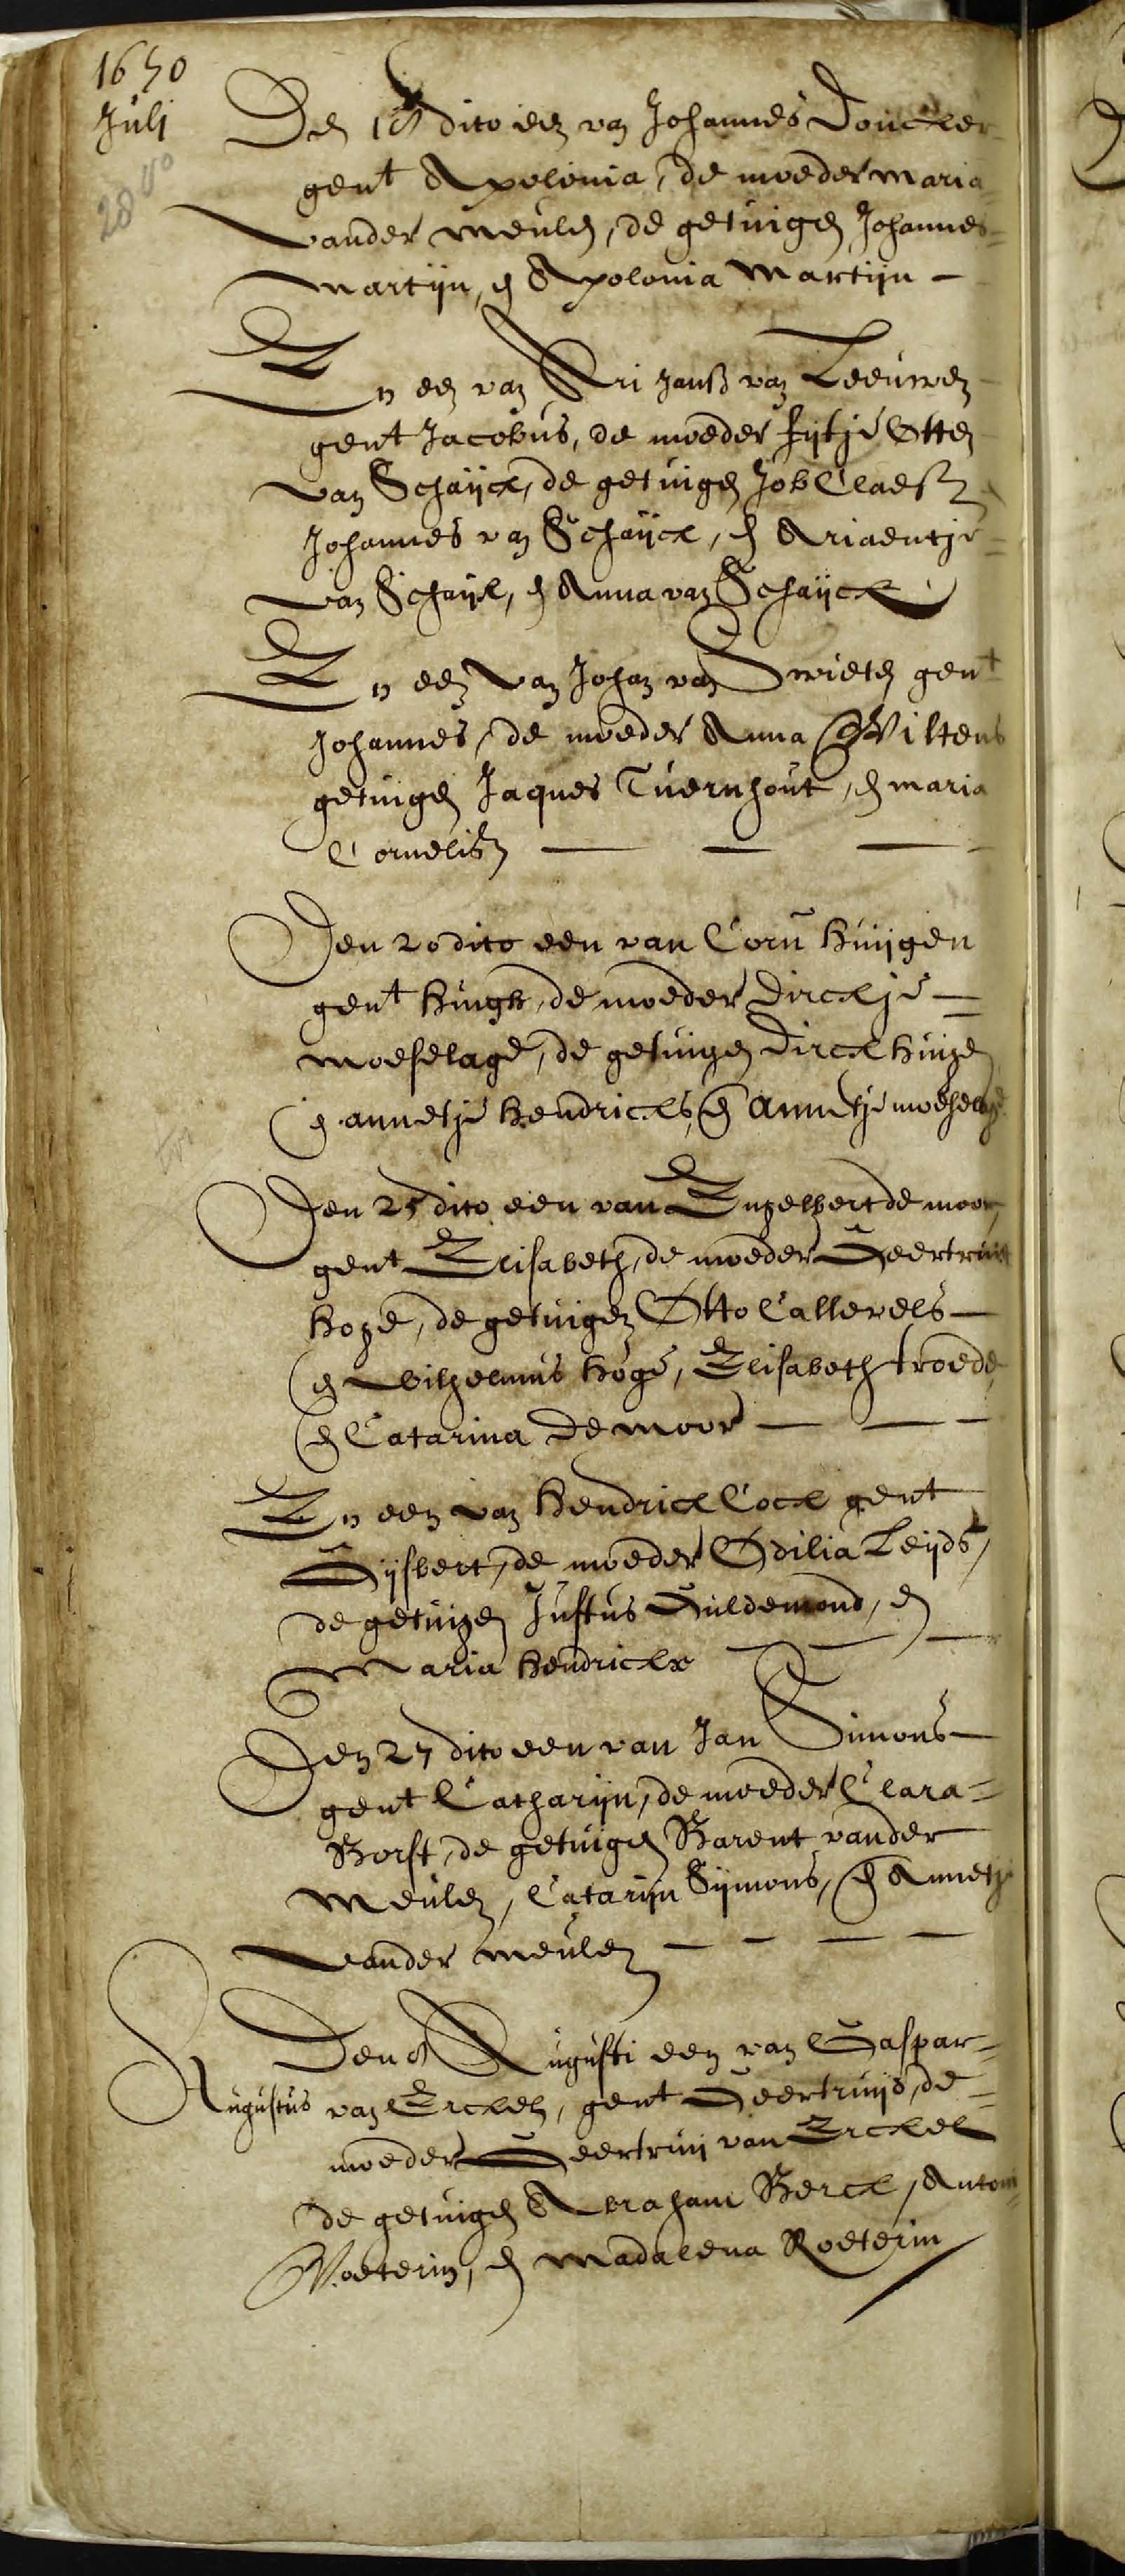 1650
Julj
Den 18 dito een van Johannes Donckler
gent Apolonia, de moeder Maria
vander Meulen, de getuigen Johannes
Martijn, en Apolonia Martijn
En een van Ari Janss van Leeuwen
gent Jacobus, de moeder Fijtje Otten
van Schaijck, de getuigen Job Claessz
Johannes van Schaijck, en Ariaentje
van Schaijk, en Anna van Schaijck
En een van Johan van Swieten gent
Johannes, de moeder Anna Wiltens
getuigen Jaques Tuernhout, en Maria
Cornelisz
Den 20 dito een van Corn Huijgen
gent Huigh, de moeder Dirckje
Moeselage, de getuigen Dirck Huigen
en Annetje Hendricks, en Annetje Moeselage
Den 25 dito een van Engelbert de Moor,
gent Elisabeth, de moeder Geertruit
Hoge, de getuigen Otto Callevels
en Wilhelmus Hoge, Elisabeth Troede
en Catarina de Moor
En een van Hendrick Cock gent
Gijsbert, de moeder Odilia Leijds,
de getuigen Justus Guldemond, en
Maria Hendrickx
Den 27 dito een van Jan Simons
gent Catharijn, de moeder Clara
Borst, de getuigen Barent vander
Meulen, Catarijn Sijmons, en Annetje
vander Meulen
Den 8 Augusti een van Caspar
Augustus van Erckel, gent Geertruijd, de
moeder Geertruij van Erckel
de getuigen Abraham Berck, Antoni
Roeterin, en Madalena Roeterin